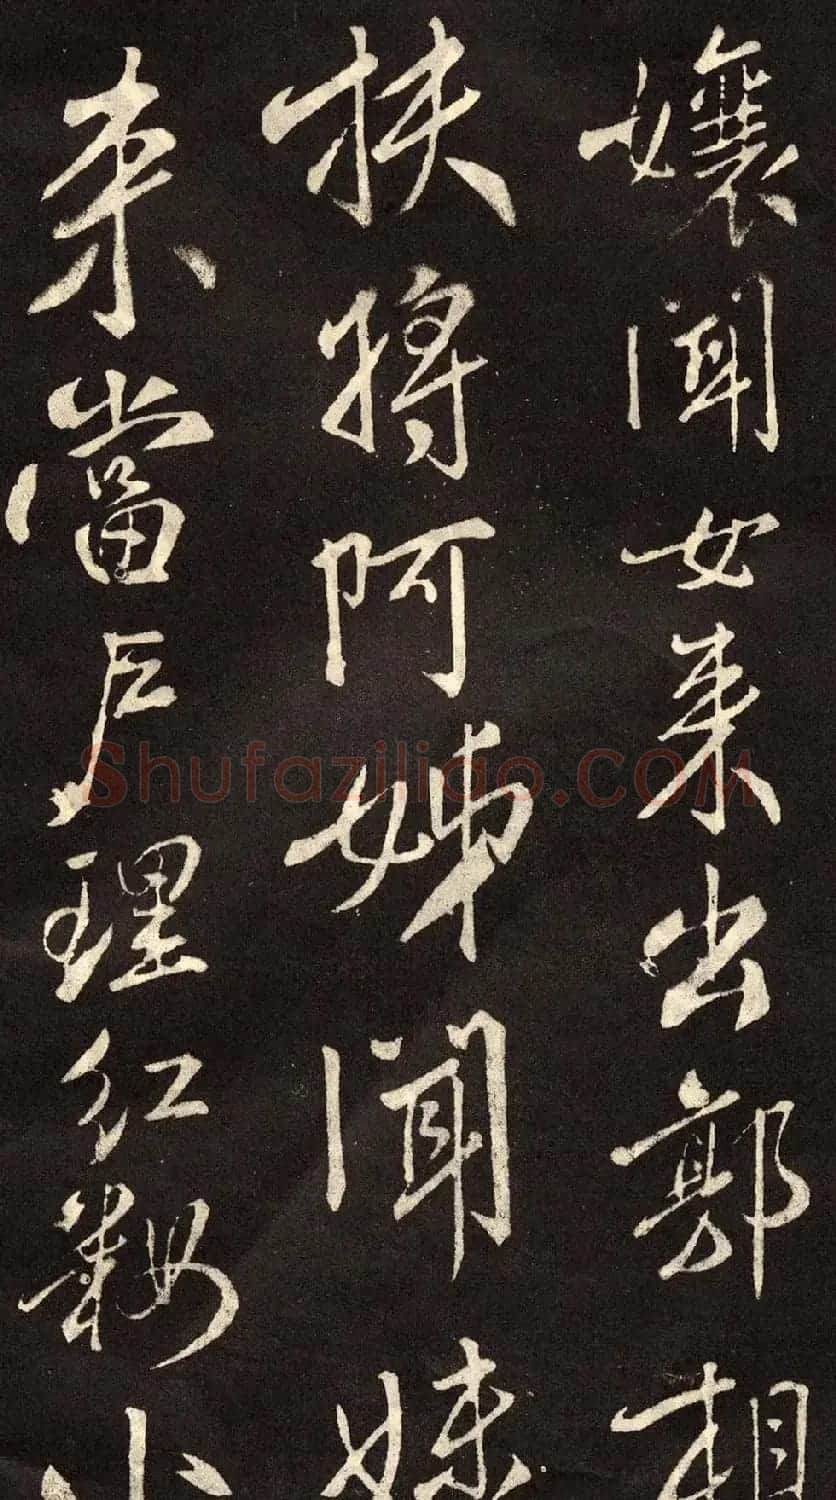 孃聞女来出郭相
扶將阿姊聞妹
来當户理紅小
Shufaziliao.COM